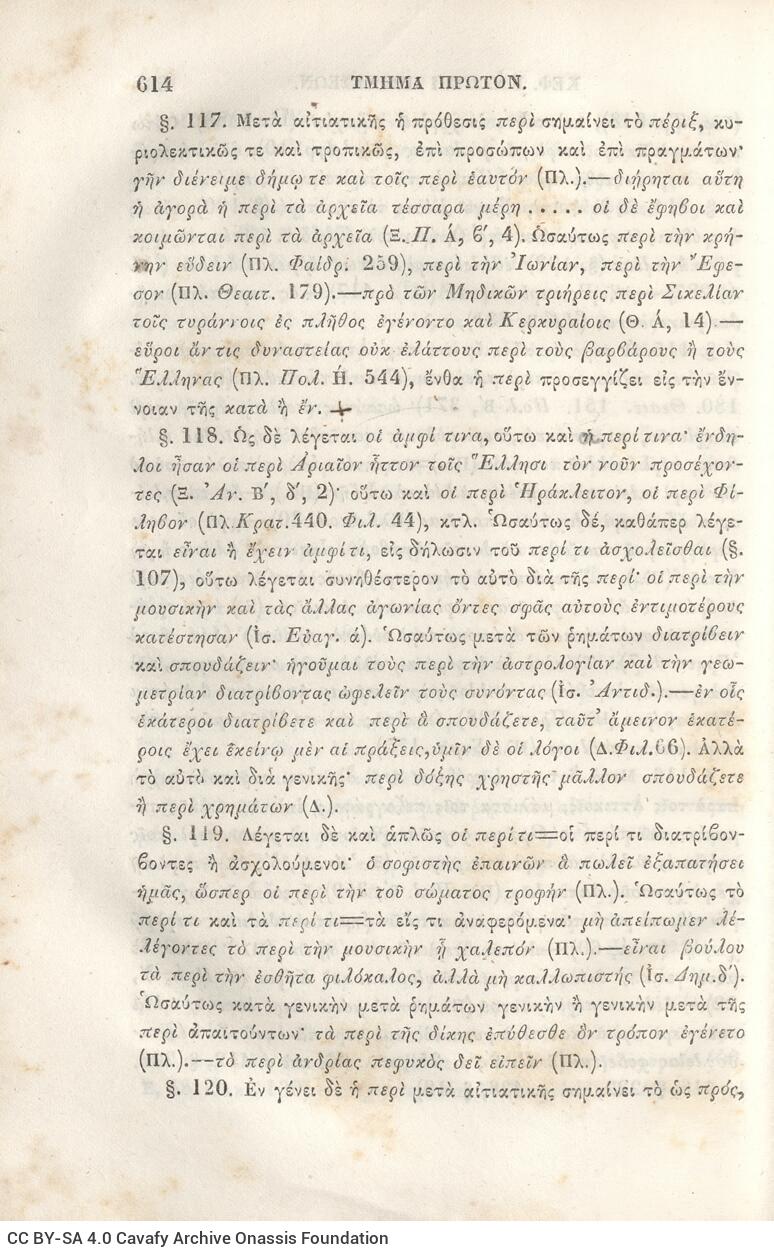 614 ΤΜΗΜΑ ΠΡΩΤΟΝ.
§. 117. Μετὰ αἰτιατικῆς ἡ πρόθεσις περὶ σημαίνει τὸ πέριξ, κυ-
ριολεκτικῶς τε καὶ τροπικῶς, ἐπὶ προσώπων καὶ ἐπὶ πραγμάτων·
γῆν διένειμε δήμῳ τε καὶ τοῖς περὶ ἑαυτόν (Πλ.).—διῄρηται αὕτη
ἡ ἀγορὰ ἡ περὶ τὰ ἀρχεῖα τέσσαρα μέρη ..... οἱ δὲ ἔφηβοι καὶ
κοιμῶνται περὶ τὰ ἀρχεῖα (Ξ. Π. Ά, β′, 4). Ὡσαύτως περὶ τὴν κρή-
νην εὕδειν (Πλ. Φαίδρ. 259), περὶ τὴν Ἰωνίαν, περὶ τὴν Ἔφε-
σον (Πλ. Θεαιτ. 179).—πρὸ τῶν Μηδικῶν τριήρεις περὶ Σικελίαν
τοῖς τυράννοις ἐς πλῆθος ἐγένοντο καὶ Κερκυραίοις (Θ. Ά, 14).—
εὕροι ἄν τις δυναστείας οὐκ ἐλάττους περὶ τοὺς βαρβάρους ἢ τοὺς
Ἕλληνας (Πλ. Πολ. Ή. 544), ἔνθα ἡ περὶ προσεγγίζει εἰς τὴν ἔν-
νοιαν τῆς κατὰ ἢ ἐν. +
§. 118. Ὡς δὲ λέγεται οἱ ἀμφί τινα, οὕτω καὶ ἡ περί τινα· ἔνδη-
λοι ἦσαν οἱ περὶ Ἀριαῖον ἧττον τοῖς Ἕλλησι τὸν νοῦν προσέχον-
τες (Ξ. Ἀν. Β′, δ′, 2)· οὕτω καὶ οἱ περὶ Ἡράκλειτον, οἱ περὶ Φί-
ληβον (Πλ. Κρατ. 440. Φιλ. 44), κτλ. Ὡσαύτως δέ, καθάπερ λέγε-
ται εἶναι ἢ ἔχειν ἀμφί τι, εἰς δήλωσιν τοῦ περί τι ἀσχολεῖσθαι (§.
107), οὕτω λέγεται συνηθέστερον τὸ αὐτὸ διὰ τῆς περί· οἱ περὶ τὴν
μουσικὴν καὶ τὰς ἄλλας ἀγωνίας ὄντες σφᾶς αὐτοὺς ἐντιμοτέρους
κατέστησαν (Ἰσ. Εὐαγ. ά). Ὡσαύτως μετὰ τῶν ῥημάτων διατρίβειν
καὶ σπουδάζειν· ἡγοῦμαι τοὺς περὶ τὴν ἀστρολογίαν καὶ τὴν γεω-
μετρίαν διατρίβοντας ὠφελεῖν τοὺς συνόντας (Ἰσ. Ἀντιδ.).—ἐν οἷς
ἑκάτεροι διατρίβετε καὶ περὶ ἃ σπουδάζετε, ταῦτ' ἄμεινον ἑκατέ-
ροις ἔχει ἐκείνῳ μὲν αἱ πράξεις, ὑμῖν δὲ οἱ λόγοι (Δ. Φιλ. 66). Ἀλλὰ
τὸ αὐτὸ καὶ διὰ γενικῆς· περὶ δόξης χρηστῆς μᾶλλον σπουδάζετε
ἢ περὶ χρημάτων (Δ.).
§. 119. Λέγεται δὲ καὶ ἁπλῶς οἱ περί τι=οἱ περί τι διατρίβον-
βοντες ἢ ἀσχολούμενοι· ὁ σοφιστὴς ἐπαινῶν ἃ πωλεῖ ἐξαπατήσει
ἡμᾶς, ὥσπερ οἱ περὶ τὴν τοῦ σώματος τροφήν (Πλ.). Ὡσαύτως τὸ
περί τι καὶ τὰ περί τι=τὰ εἴς τι ἀναφερόμενα· μὴ ἀπείπωμεν λέ-
λέγοντες τὸ περὶ τὴν μουσικὴν ᾗ χαλεπόν (Πλ.).—εἶναι βούλου
τὰ περὶ τὴν ἐσθῆτα φιλόκαλος, ἀλλὰ μὴ καλλωπιστής (Ἰσ. Δημ. δ′).
Ὡσαύτως κατὰ γενικὴν μετὰ ῥημάτων γενικὴν ἢ γενικὴν μετὰ τῆς
περὶ ἀπαιτούντων· τὰ περὶ τῆς δίκης ἐπύθεσθε ὃν τρόπον ἐγένετο
(Πλ.).—τὸ περὶ ἀνδρίας πεφυκὸς δεῖ εἰπεῖν (Πλ.).
§. 120. Ἐν γένει δὲ ἡ περὶ μετὰ αἰτιατικῆς σημαίνει τὸ ὡς πρός,
CC BY-SA 4.0 Cavafy Archive Onassis Foundation